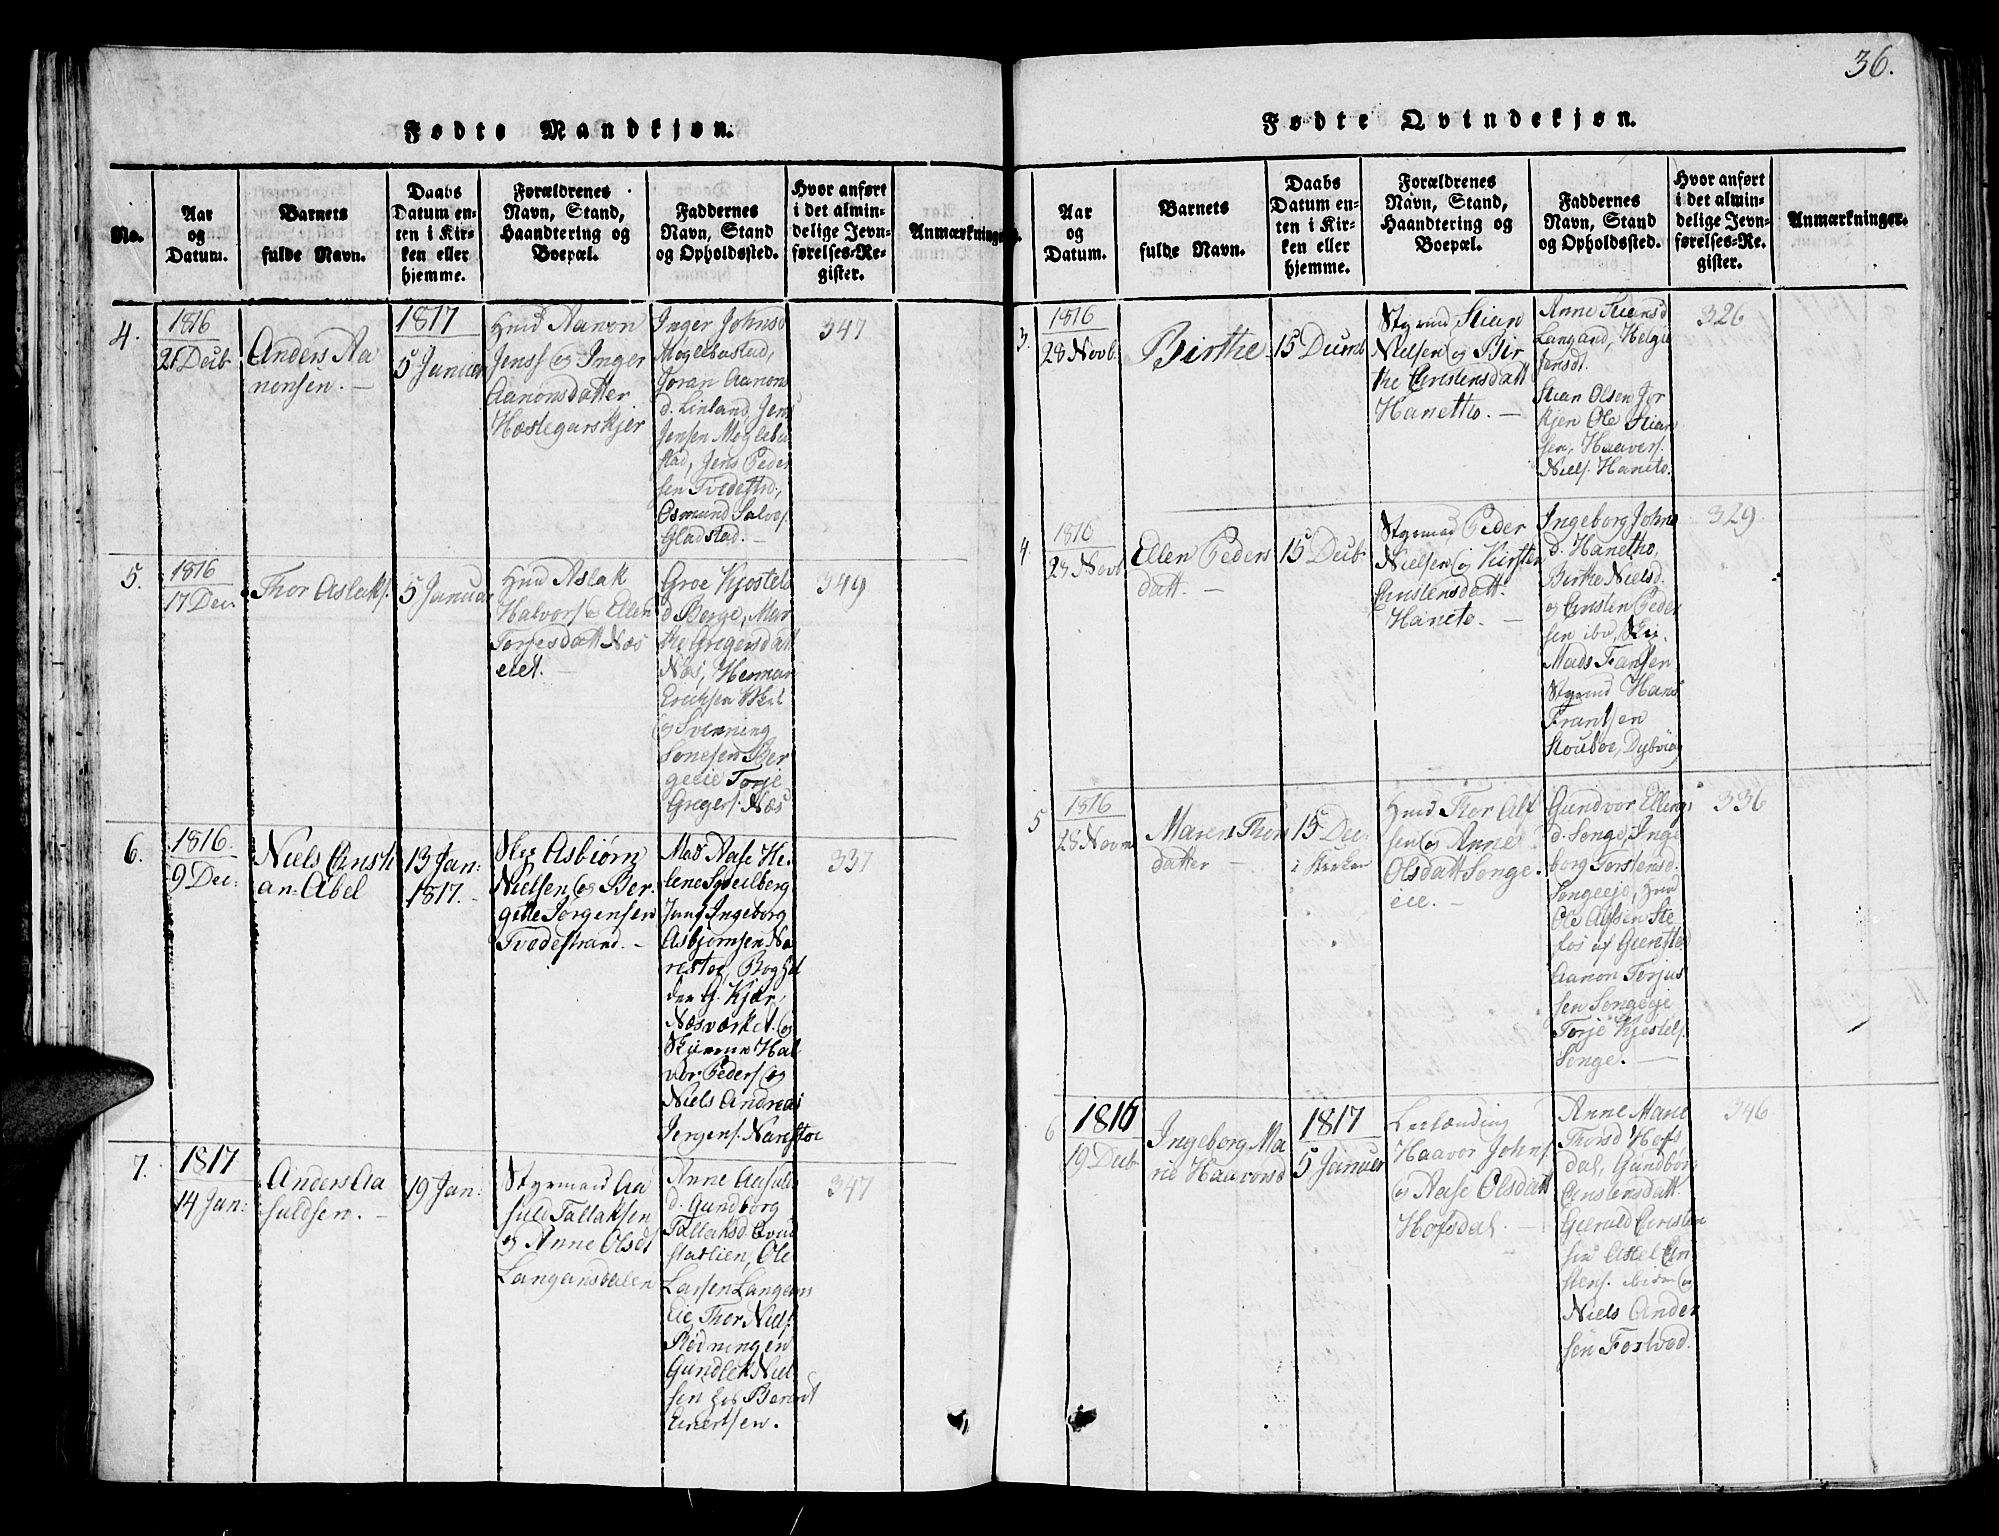 36.
Fødte Mandkjøn.
No.
Aar
og
Datum.
Barnets
fulde Navn.
Daabs
Datum en-
ten i Kir-
ken eller
hjemme.
Forældrenes
Navn, Stand,
Haandtering og
Boepæl.
Faddernes
Navn, Stand
og Opholdssted.
Hvor anført
i det almin-
delige Jevn-
førelses-Re-
gister.
Anmærkninger
4.
1816
21 Decb
Anders Aa
nonsen. –
1817
5 Januer
Hmd Aanon
Jenss og Inger
Aanonsdatter
Hæstegarskjer
Inger Johnsd
Moglebustad,
Joran Aanons
d. Linland, Jens
Jensen Moglebu
stad, Jens Peder
sen Tvedestrd,
Osmund Salves.
Gladstad. –
347
5.
1816
17 Dec.
Thor Aslaks.
5 Januar
Hmd Aslak
Halvors og Ellen
Torjesdatt Næs
eiet. –
Groe Kjostels
d. Berge, Mar
the Gregersdatt
Næs, Herman
Erichsen
og Svenning
Sonesen Ber
geeie Torje
Gregers. Næs
349
6.
1816.
9 Dec:
Niels Christi
an Abel
13 Jan:
1817. –
Asbiørn
Nielsen og Ber
gette Jørgensen
Tvedestrand. –
Mad Aase He-
lene Smeilberg
Jund Ingeborg
Asbjørnsen Na
restøe, Boghol
der G. Kjær,
Næsværket. og
Hal
vor Peders og
Niels Andreas
Jørgens. Narestoe
337
7.
1817
14 Jan:
Anders Aa
suldsen. –
19 Jan:
Styrmand Aa
suld Tallaksen
og Anne Olsdt
Langansdalen
Anne Aasuls
d. Gundborg
Tallaksd.
statlien, Ole
Larsen Langans
eie, Thor Niels.
Rødningen
Gundlek Niel
sen hos Berent
Evertsen.
347
Fødte Qvindekjøn.
Aar
og
Datum.
Barnets
fulde Navn.
Daabs
Datum en-
ten i Kir-
ken eller
hjemme.
Forældrenes
Navn, Stand,
Haandtering og
Boepæl.
Faddernes
Navn, Stand
og Opholdssted.
Hvor anført
i det almin-
delige Jevn-
førelses-Re-
gister.
Anmærkninger.
3
1816
28 Novb.
Birthe
15 Decmb
Styrmd Stian
Nielsen og Bir
the Christensdatt
Hanetho. –
Anne
Langand, Helgie
Jensdt.
Stian Olsen Jor
kjen Ole Stian
sen, Haavers.
Niels. Haneto.
326
4
1816
23 Novb
Ellen Peders
datt. –
15 Decb
Styrmd Peder
Nielsen og Kirsten
Christensdatt.
Haneto. –
Ingeborg Johns
d. Hanetho,
Birthe Nielsd.
og Christen Peder
sen ibd,
Mads Fransen
Styrmd Hans
Frantsen
Stoutoe, Dybvig
329
5
1816
28 Novm
Maren Thors
datter –
15 Dec
i Kirken
Hmd Thor Alf
sen og Anne
Olsdatt Songe
eie. –
Gundvor Ellings
d. Songe, Inge
borg Torstensd.
Songeeje, Hmd
Ole Alfsen Ste
los af Gierestad
Aanon Terjus
sen Songeeje
Torje Kjestels.
Songe. –
336
6
1816
19 Decb
Ingeborg Ma
rie Haavorsd
1817
5 Januer
Leilænding
Haavor Johns.
og Aase Olsdatt
Hofsdal. –
Anne Marie
Thorsd Hofs
dal, Gundborg
Christensdatt.
Gieruld Christen
sen Axel Chri
stens. og
Niels Ander
sen Fostvod.
346